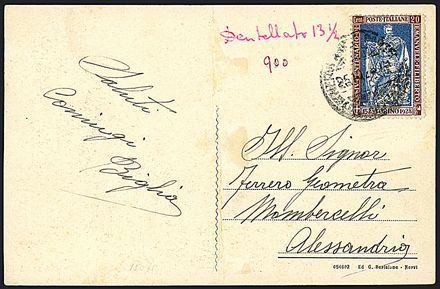 Dentellato 13½
900
POSTE·ITALIANE
20
Cent
TORINO 1928
Saluti
Coniugi
Biglia
Ill. Signor
Ferrero Geometra
Mombercelli
Alessandria
Ed G.
Nervi